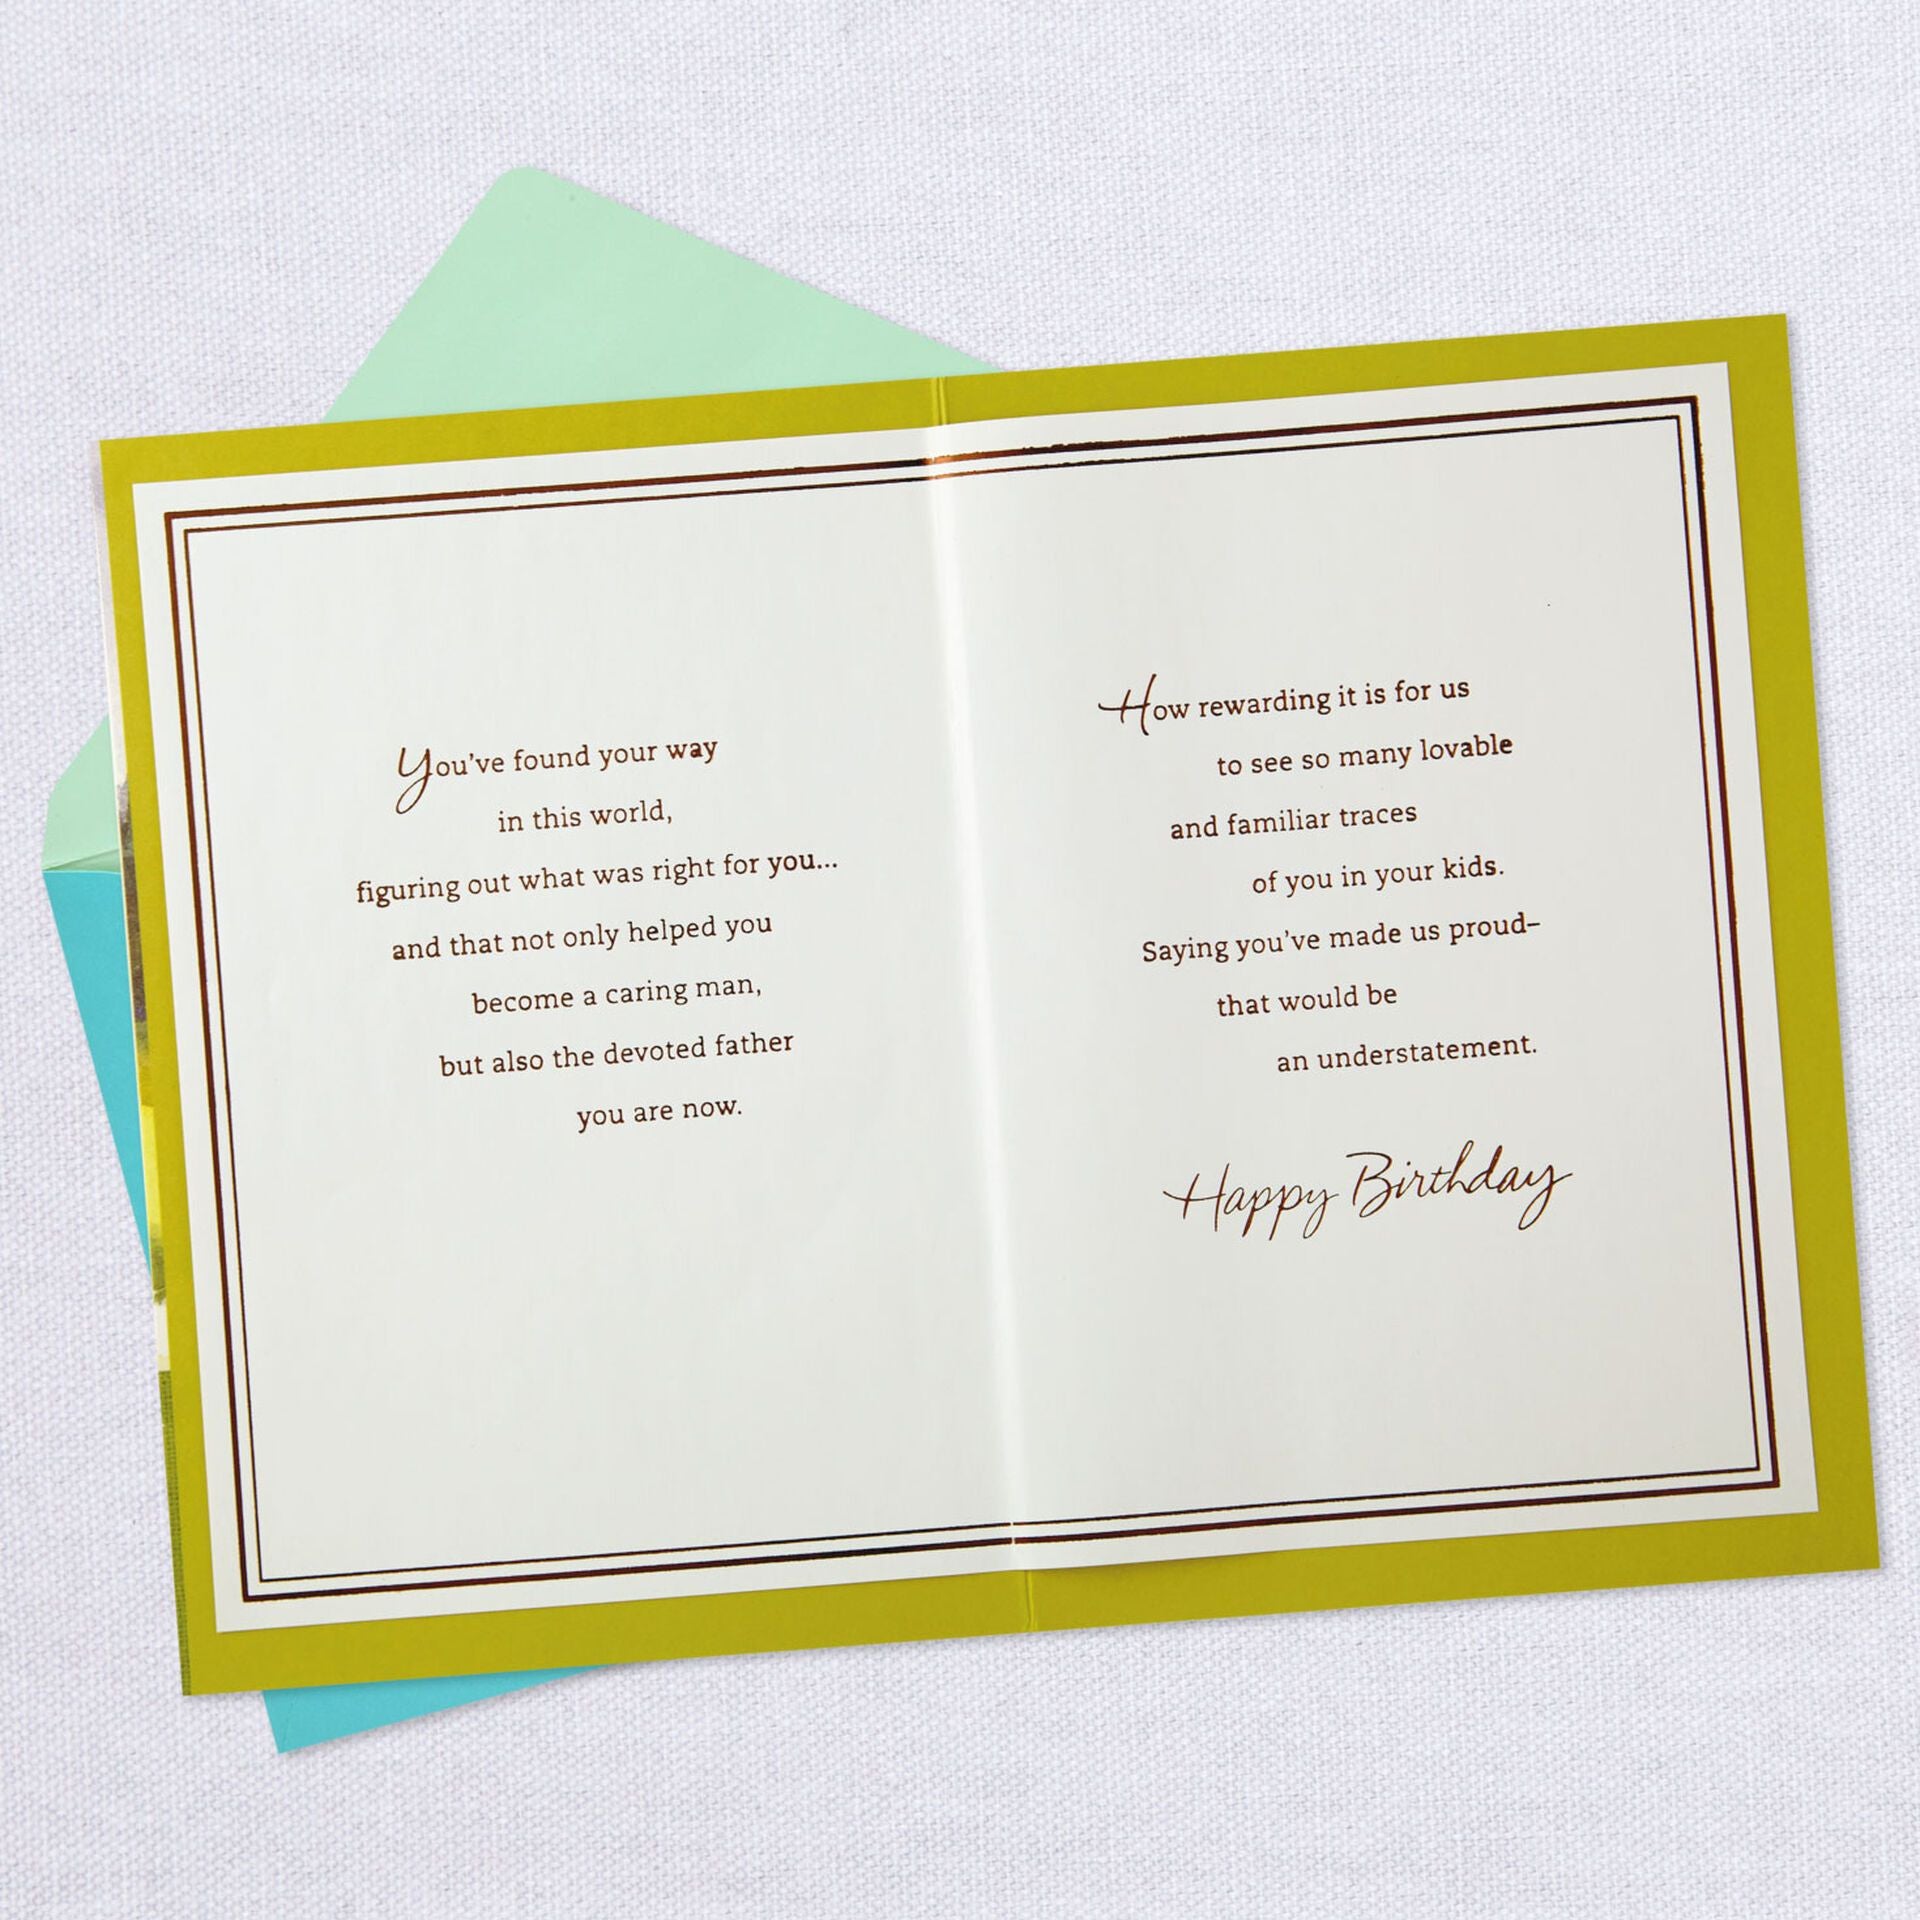 You've found your way
in this world,
figuring out what was right for you...
and that not only helped you
become a caring man,
but also the devoted father
you are now.
How rewarding it is for us
to see so many lovable
and familiar traces
of you in your kids.
Saying you've made us proud–
that would be
an understatement.
Happy Birthday